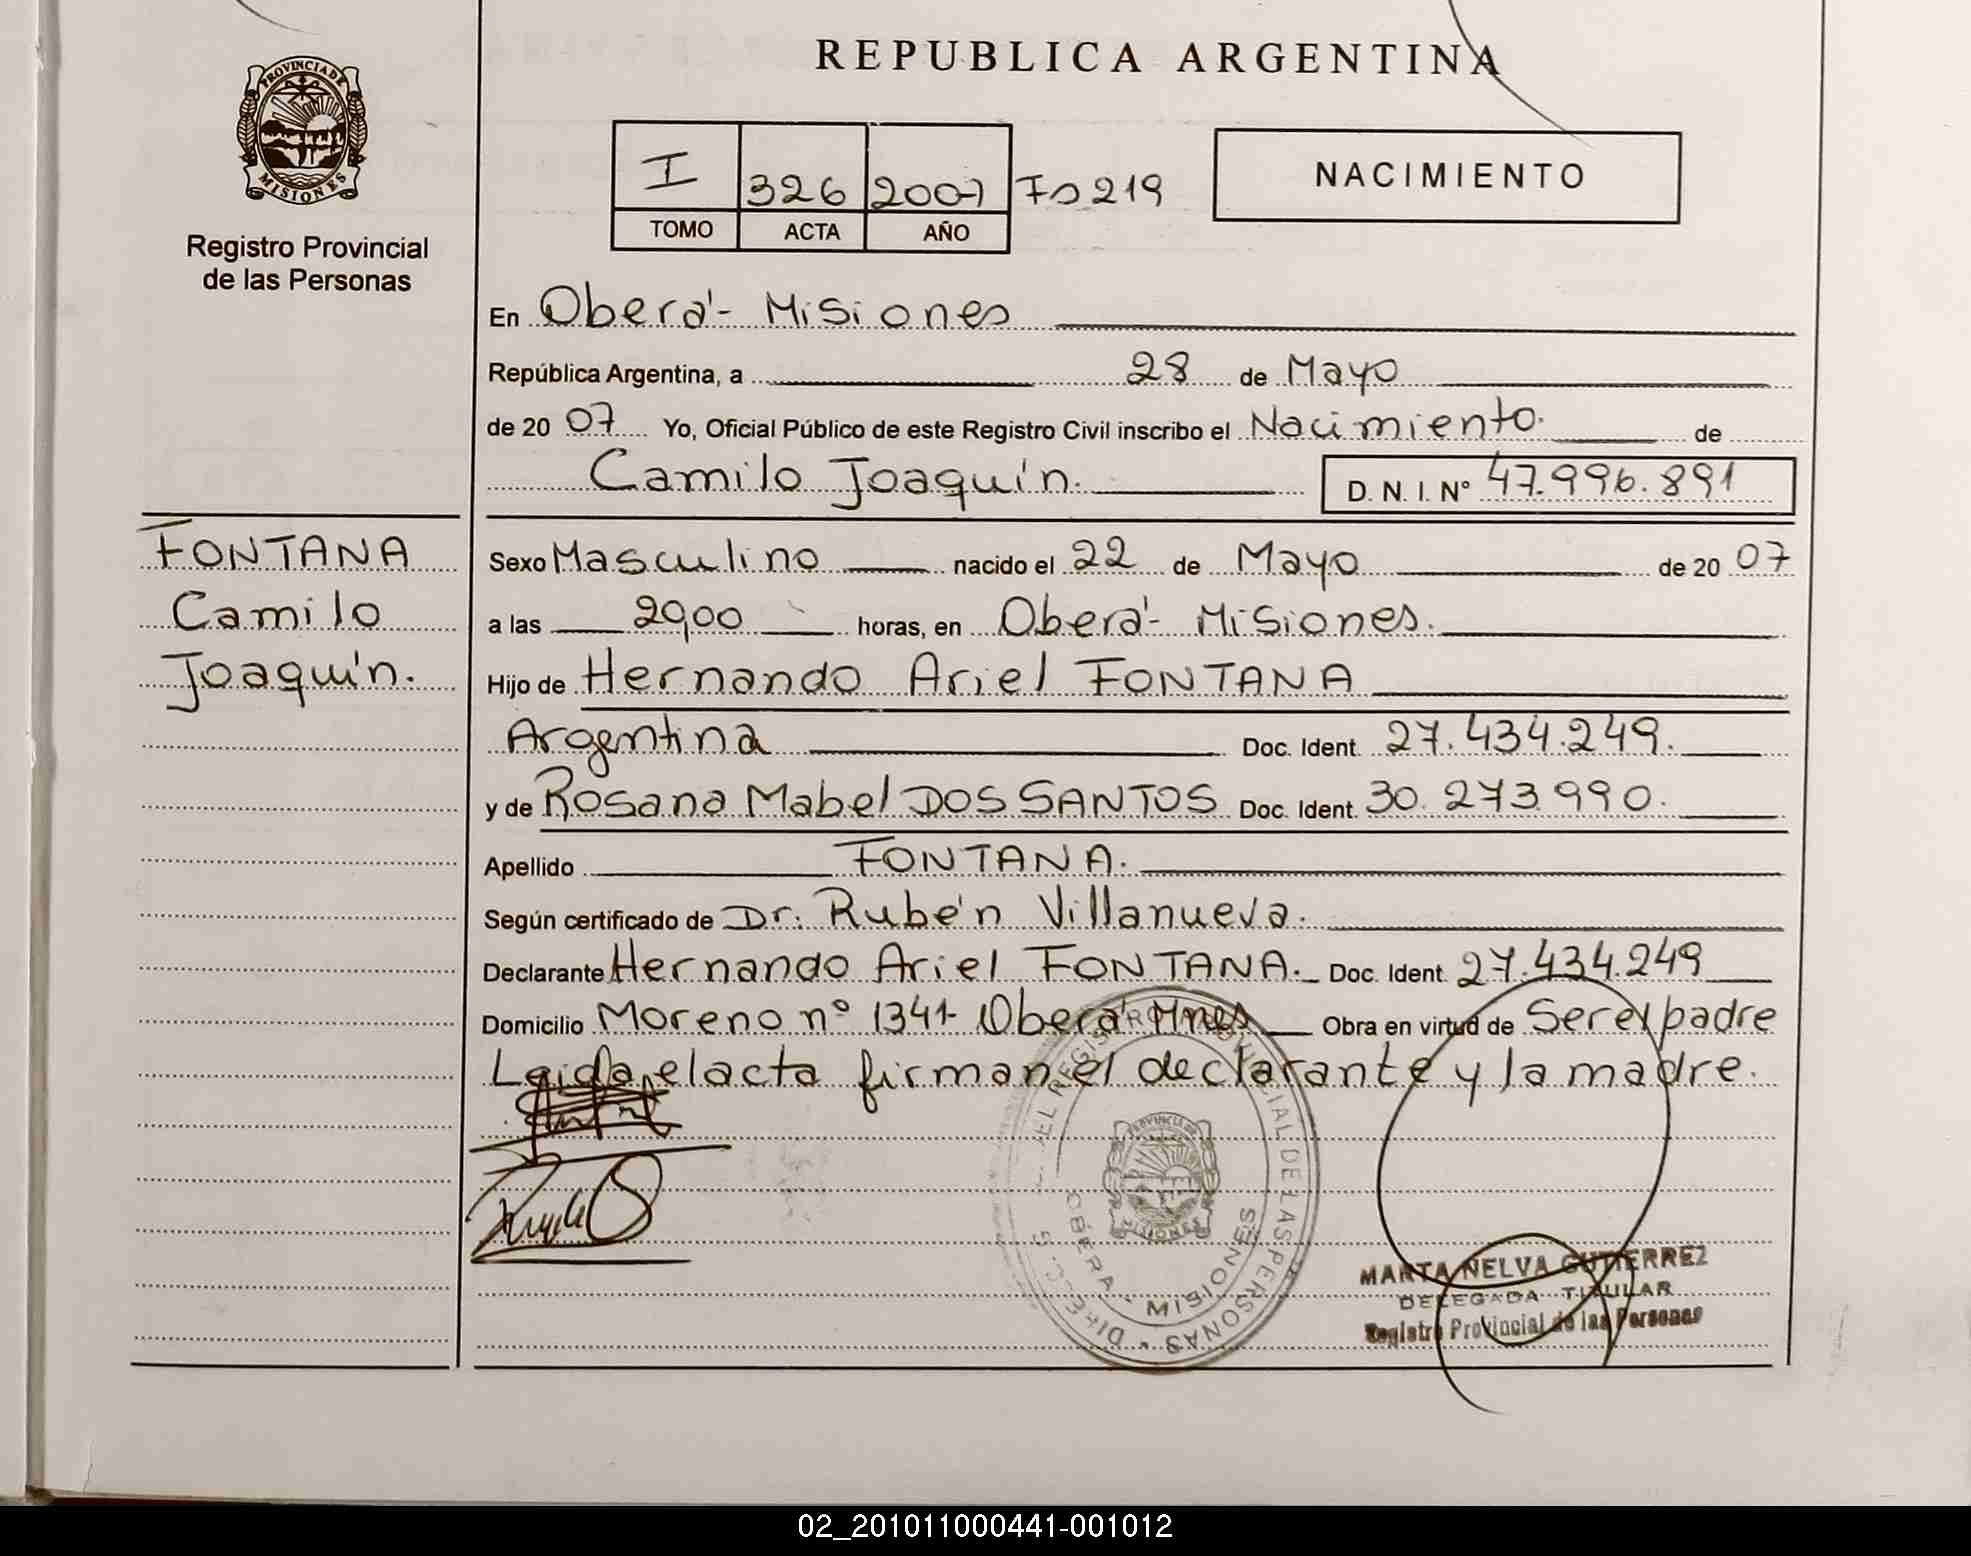 REPUBLICA ARGENTINA
PROVINCIA DE
MISIONES
Registro Provincial
de las Personas
I 326 2007 Fo 219
TOMO ACTA AÑO
NACIMIENTO
En Oberá - Misiones
República Argentina, a 28 de Mayo
de 20 07 Yo, Oficial Público de este Registro Civil inscribo el Nacimiento. de
Camilo Joaquín. D.N.I. Nº 47.996.891
FONTANA
Camilo
Joaquín.
Sexo Masculino nacido el 22 de Mayo de 20 07
a las 20,00 horas, en Oberá - Misiones.
Hijo de Hernando Ariel FONTANA
Argentina Doc. Ident. 27.434.249.
y de Rosana Mabel DOS SANTOS Doc. Ident. 30.273.990.
Apellido FONTANA.
Según certificado de Dr. Rubén Villanueva.
Declarante Hernando Ariel FONTANA. Doc. Ident. 27.434.249
Domicilio Moreno nº 1341- Oberá Mnes Obra en virtud de Ser el padre
Leida el acta firman el declarante y la madre.
EL REGISTRO PROVINCIAL DE LAS PERSONAS
PROVINCIA DE
MISIONES
OBERA - MISIONES
MARTA NELVA GUTIERREZ
DELEGADA TITULAR
Registro Provincial de las Personas
02_201011000441-001012